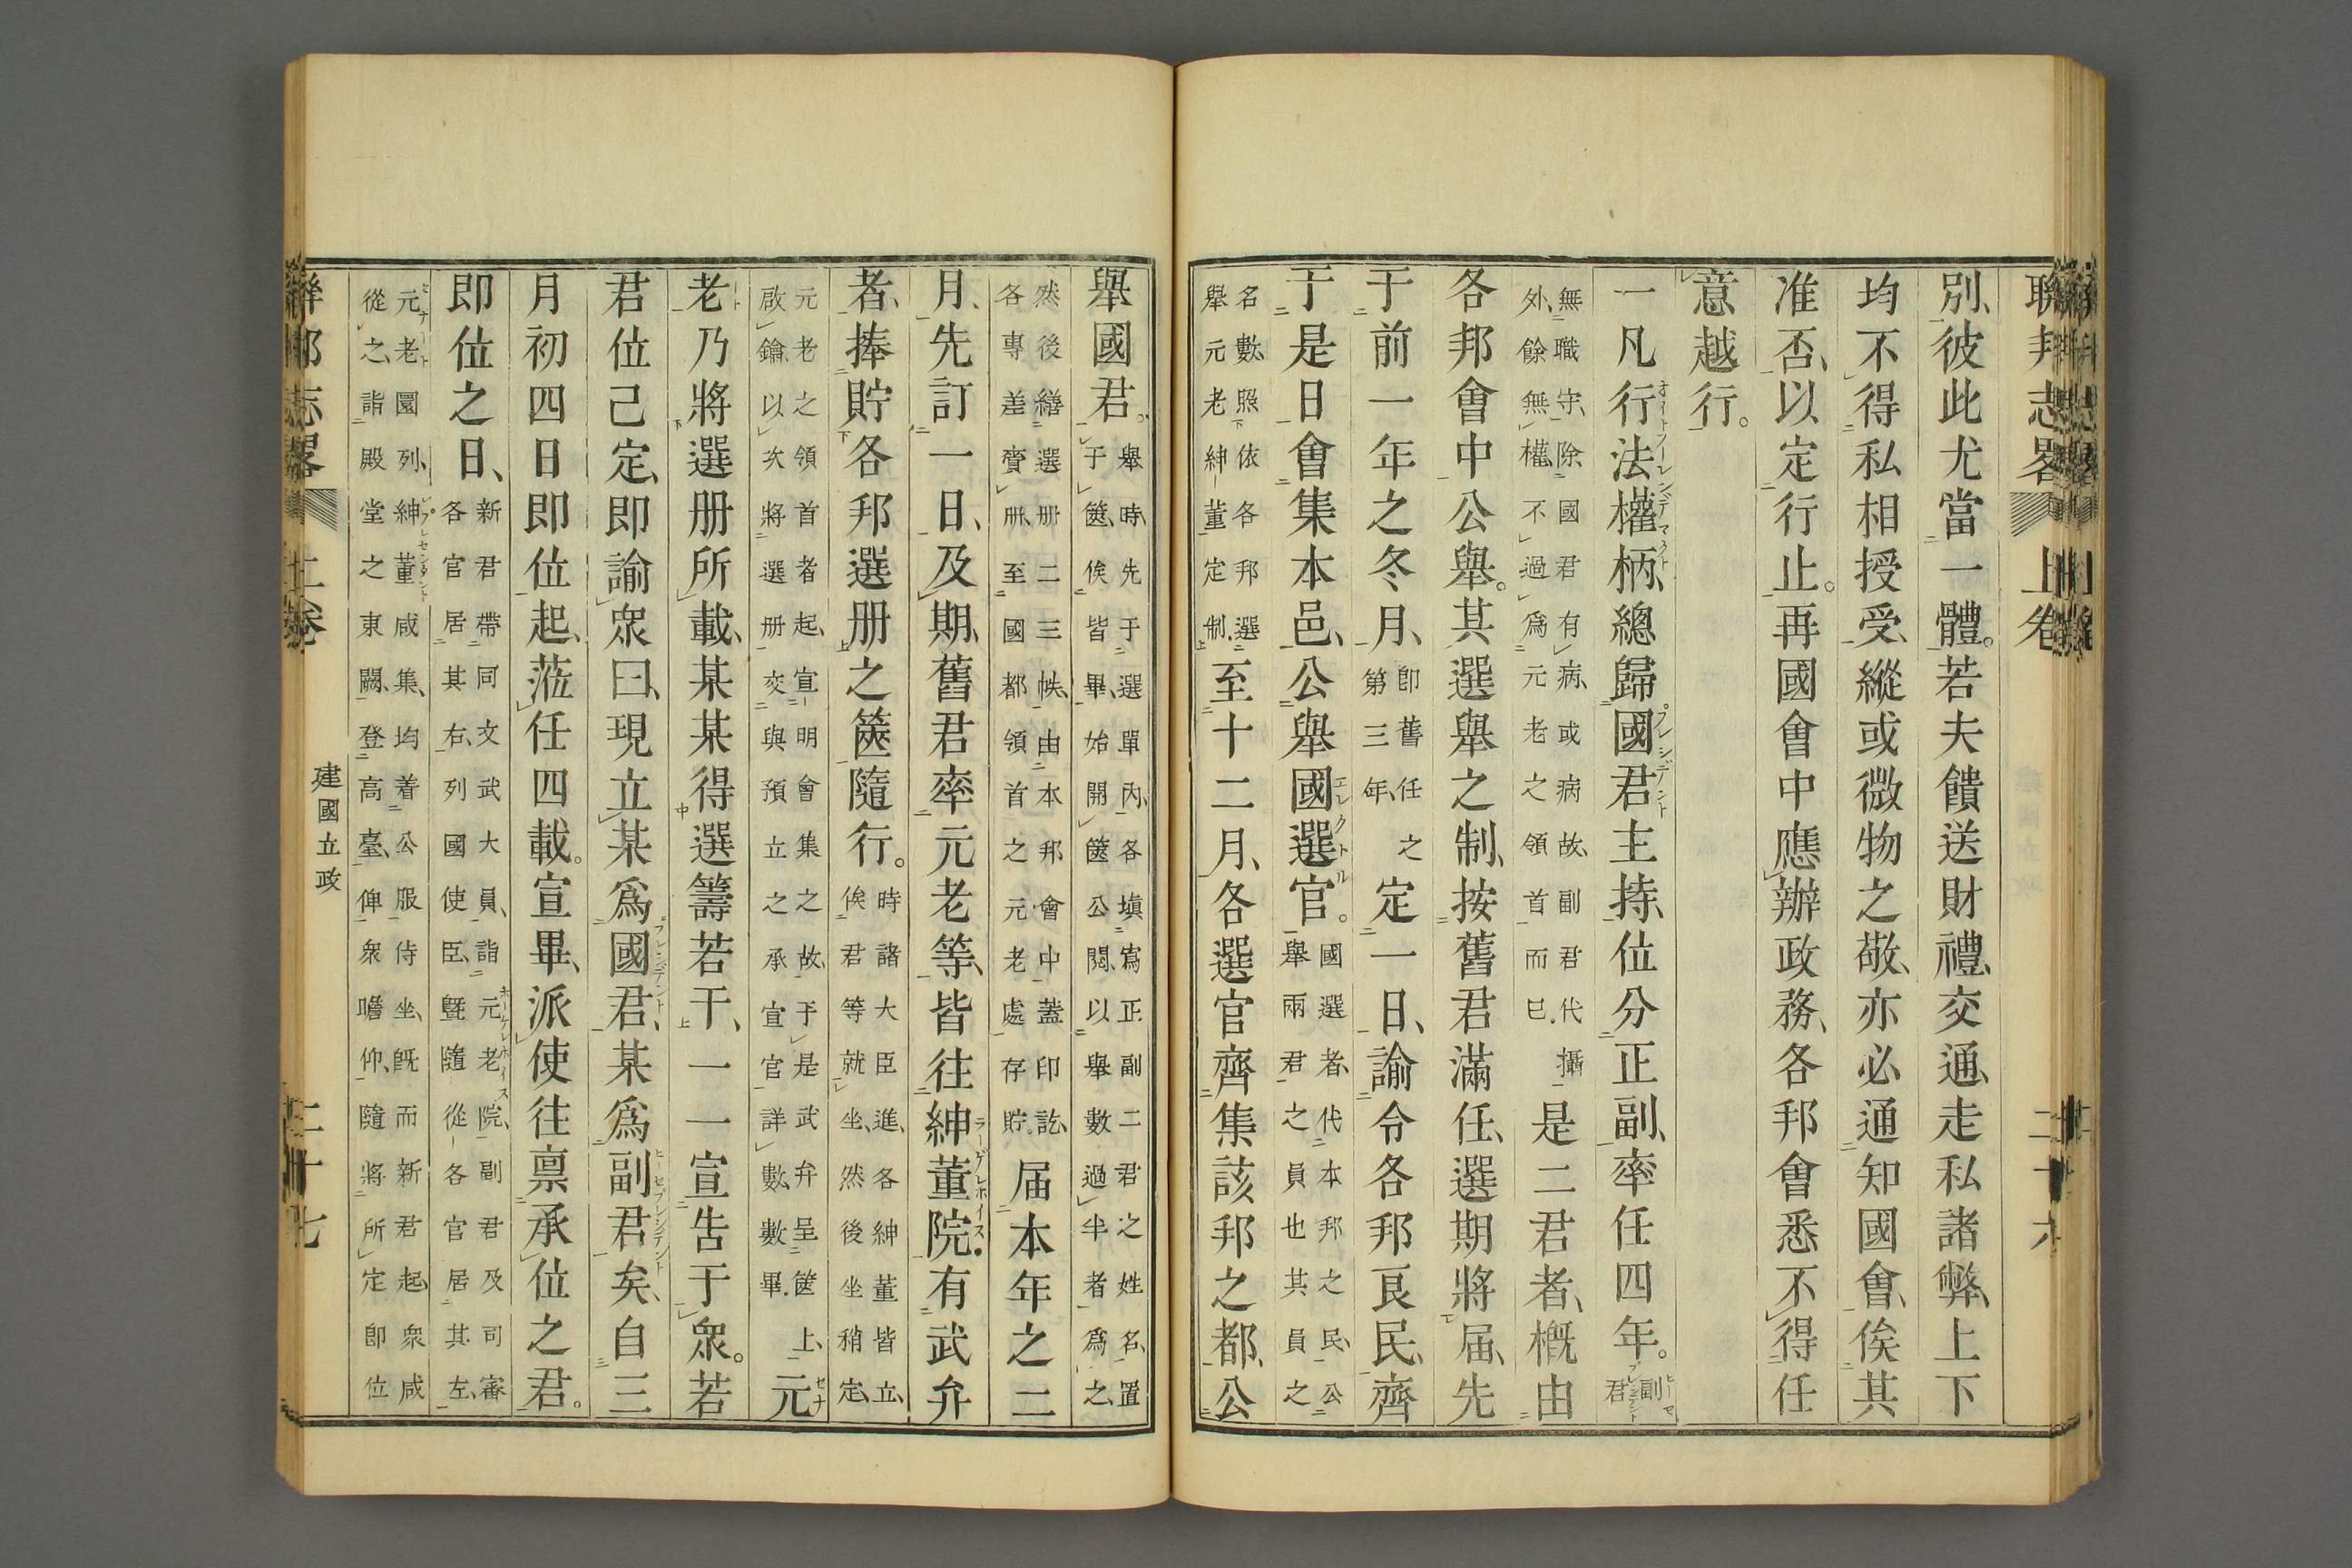 聯邦志畧 上卷
別、彼此尤當一體。若夫饋送財禮、交通、走私諸弊、上下
均不得私相授受、縱或微物之敬、亦必通知國會、俟其
准否、以定行止。再國會中應辦政務、各邦會悉不得任
意越行。
一凡行法權柄、總歸國君主持、位分正副、率任四年。副君
無職守、除國君有病、或病故、副君代攝
外、餘無權、不過爲元老之領首而已。
是二君者、概由
各邦會中公舉。其選舉之制、按舊君滿任、選期將届、先
于前一年之冬月、
即舊任之
第三年、
定一日、諭令各邦良民、齊
于是日會集本邑、公舉國選官。
國選者、代本邦之民、公
舉兩君之員也其員之
名數、照依各邦選
舉元老紳董定制、
至十二月、各選官齊集該邦之都、公
舉國君。
舉時、先于選單內、各塡寫正副二君之姓名、置
于篋、俟皆畢、始開篋公閱、以舉數過半者爲之、
然後繕選册二三帙、由本邦會中、蓋印訖、
各專差賫册、至國都領首之元老處存貯、
届本年之二
月、先訂一日、及期、舊君率元老等、皆往紳董院。有武弁
者、捧貯各邦選册之篋隨行。
時諸大臣進、各紳董皆立、
俟君等就坐、然後坐稍定、
元老之領首者起、宣明會集之故、于是武弁呈篋上、
啟鑰、以次將選册交與預立之承宣官、詳數、數畢、
元
老乃將選册所載、某某得選籌若干、一一宣告于衆。若
君位已定、即諭衆曰、現立某爲國君、某爲副君矣、自三
月初四日即位起、蒞任四載。宣畢、派使往禀承位之君。
即位之日、
新君帶同文武大員、詣元老院、副君及司審
各官居其右、列國使臣、曁隨從各官居其左、
元老團列、紳董咸集、均着公服侍坐、旣而新君起、衆咸
從之、詣殿堂之東闢、登高臺、俾衆瞻仰、隨將所定即位
聯邦志畧 上卷 建國立政 二十七